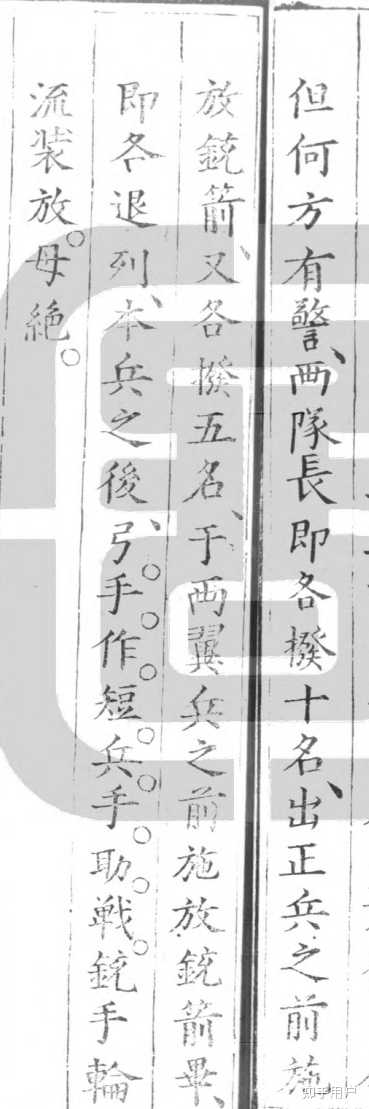 但何方有警、两隊長即各撥十名、出正兵之前施
放銃箭、又各撥五名、于两翼兵之前施放銃箭畢、
即各退列、本兵之後、弓手作短兵手助戦銃手輪
流装放。毋絶。
知乎用户